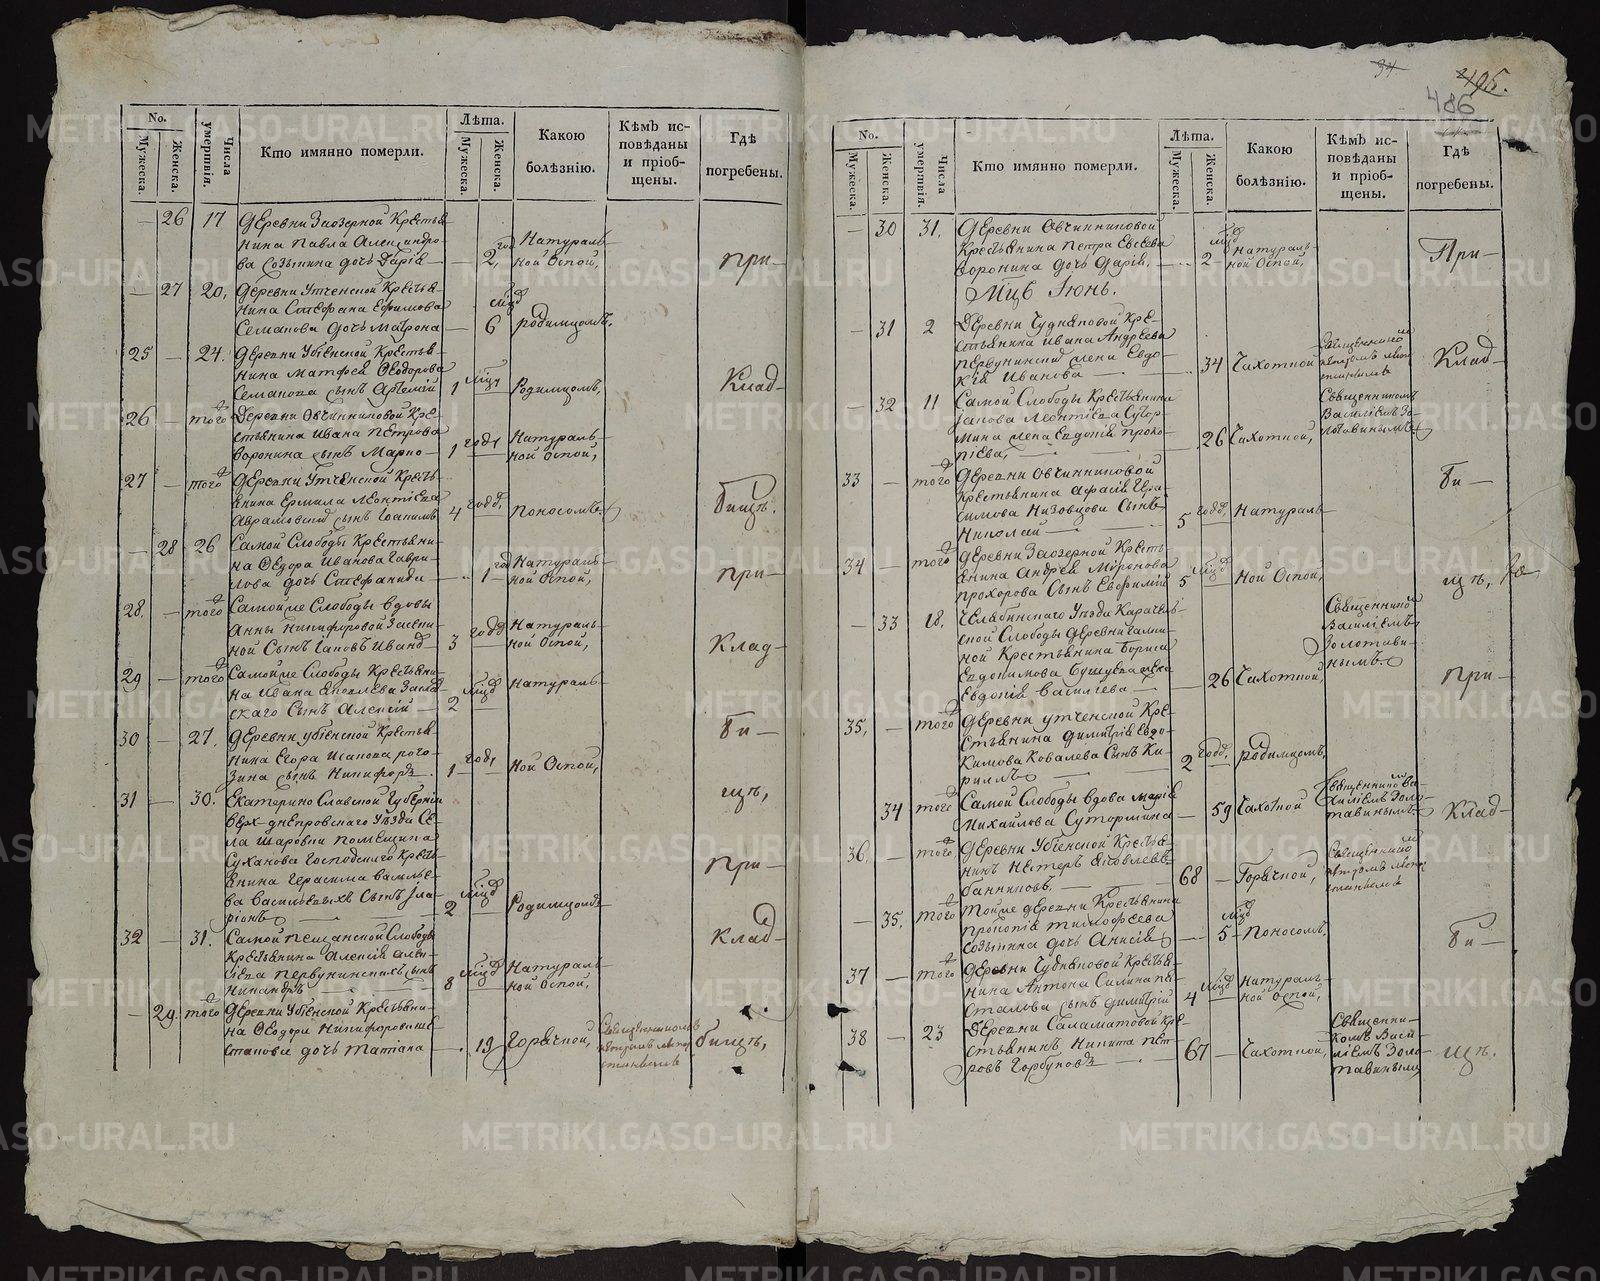 34
495.
486
No.
Мужеска.
Женска.
Числа умертвія.
Кто имянно померли.
Лѣта.
Мужеска.
Женска.
Какою
болѣзнію.
Кѣмъ ис-
повѣданы
и пріоб-
щены.
Гдѣ
погребены.
— 26 17 Деревни Заозерной Крестья
нина Павла Алексадро
ва Созыкина дочь Дарія — 2, год Натураль-
ной Оспой, при-
— 27 20, Деревни Утченской Крестья
нина Стефана Ефимова
Семанова дочь Матрона — 6 мцд родимцомъ.
25 — 24. Деревни Убіенской Крестья
нина Матфея Ѳеодорова
Семанова сынъ Артемій 1 мцъ Родимцомъ, Клад-
26 — того Деревни Овчинниковой Кре-
стьянина Ивана Петрова
Воронина сынъ Марко — 1 годъ Натураль-
ной Оспой,
27 — того Деревни Утченской Кресть-
янина Ермила Леонтіева
сынъ Іоаннъ 4 годд, поносомъ. бищъ.
— 28 26 Самой Слободы Крестьяни-
на Ѳедора Иванова Гаври-
лова дочь Стефанида — 1 год Натураль-
ной Оспой, при-
28. — того Самойже Слободы вдовы
Анны Никифоровой
ной Сынъ Іаковъ 3 годд Натураль-
ной Оспой, Клад-
29 — того Самойже Слободы Крестьяни-
на Ивана Яковлева
скаго Сынъ Алексій — 2 мцд натураль-
30 — 27. Деревни Убіенской Крестья
нина Егора Исакова рого-
зина сынъ Никифоръ — 1 годъ, ной Оспой, би —
31 — 30. Екатерино Славской Губерніи
Верх-днепровского Уѣзда Се-
ла Шаровки помещика
Суханова Господского Кресть
янина Герасима Василье-
ва Васильевыхъ Сынъ Ила
ріонъ 2 мцд Родимцомъ при — цъ,
32 — 31. Самой Пещанской Слободы
Крестьянина Алексія
Первунинскихъ сынъ
Никандръ 8 мцд Натураль-
ной Оспой, Клад-
— 29 того Деревни Убіенской Крестьяни-
на Ѳеодора Никифорова
станова дочь Татіана — 19 Горячкой, Священникомъ
Петромъ бищъ,
No.
Мужеска.
Женска.
Числа умертвія.
Кто имянно померли.
Лѣта.
Мужеска.
Женска.
Какою
болѣзнію.
Кѣмъ ис-
повѣданы
и пріоб-
щены.
Гдѣ
погребены.
— 30 31. Деревни Овчинниковой
Крестьянина Петра Евсеева
Воронина дочь Дарія, 2 мцд натураль-
ной Оспой, При-
Мцъ Іюнь.
— 31 2 Деревни Чудняковой Кре-
стьянина Ивана Андреева
Первунинскаго жена Евдо-
кія Иванова 34 Чахоткой Священникомъ
Петромъ Клад-
— 32 11 Самой Слободы Крестьянина
Іакова Леонтіева Сутор-
мина жена Евдокія проко-
піева, 26 Чахоткой, Священникомъ
Василіемъ Зо-
лотавинымъ
33 — того Деревни Овчинниковой
Крестьянина Афасія Гера-
симова Низовцова Сынъ
Николай 5 годд, Натураль- би —
34 — того Деревни Заозерной Кресть-
янина Андрея Міронова
Прохорова Сынъ Евфимій 5 мцд Ной Оспой, щъ,
— 33 18. Челябинскаго Уѣзда Карачель-
ской Слободы деревни
ной Крестьянина Бориса
Евдокимова жена
Евдокія Васильева — 26 Чахоткой, Священникомъ
Василіемъ
Золотави-
нымъ. при —
35, — того Деревни Утченской Кре-
стьянина Димитрія Евдо-
кимова Ковалева Сынъ Ки-
риллъ 2 годд, родимцомъ,
34 того Самой Слободы вдова Марія
Михайлова Сутормина — 59 Чахоткой Священникомъ Ва-
силіемъ Золо-
тавинымъ Клад-
36. — того Деревни Убіенской Крестья-
нинъ Нестеръ Яковлевъ
банниковъ. 68 — Горячкой, Священникомъ
Петромъ
— 35. того Тойже деревни Крестьянина
Прокопія Тимофеева
Созыкина дочь Анисія 5 мцд Поносомъ. би —
37 — того Деревни Чудняковой Крестья-
нина Антона Силина
сынъ Димитрій 4 мцд Натураль-
ной Оспой,
38 — 23 Деревни Саламатовой Кре-
стьянинъ Никита Пет-
ровъ Горбуновъ 67 — Чахоткой, Священни-
комъ Васи
ліемъ Золо-
тавинымъ щъ.
METRIKI.GASO-URAL.RU